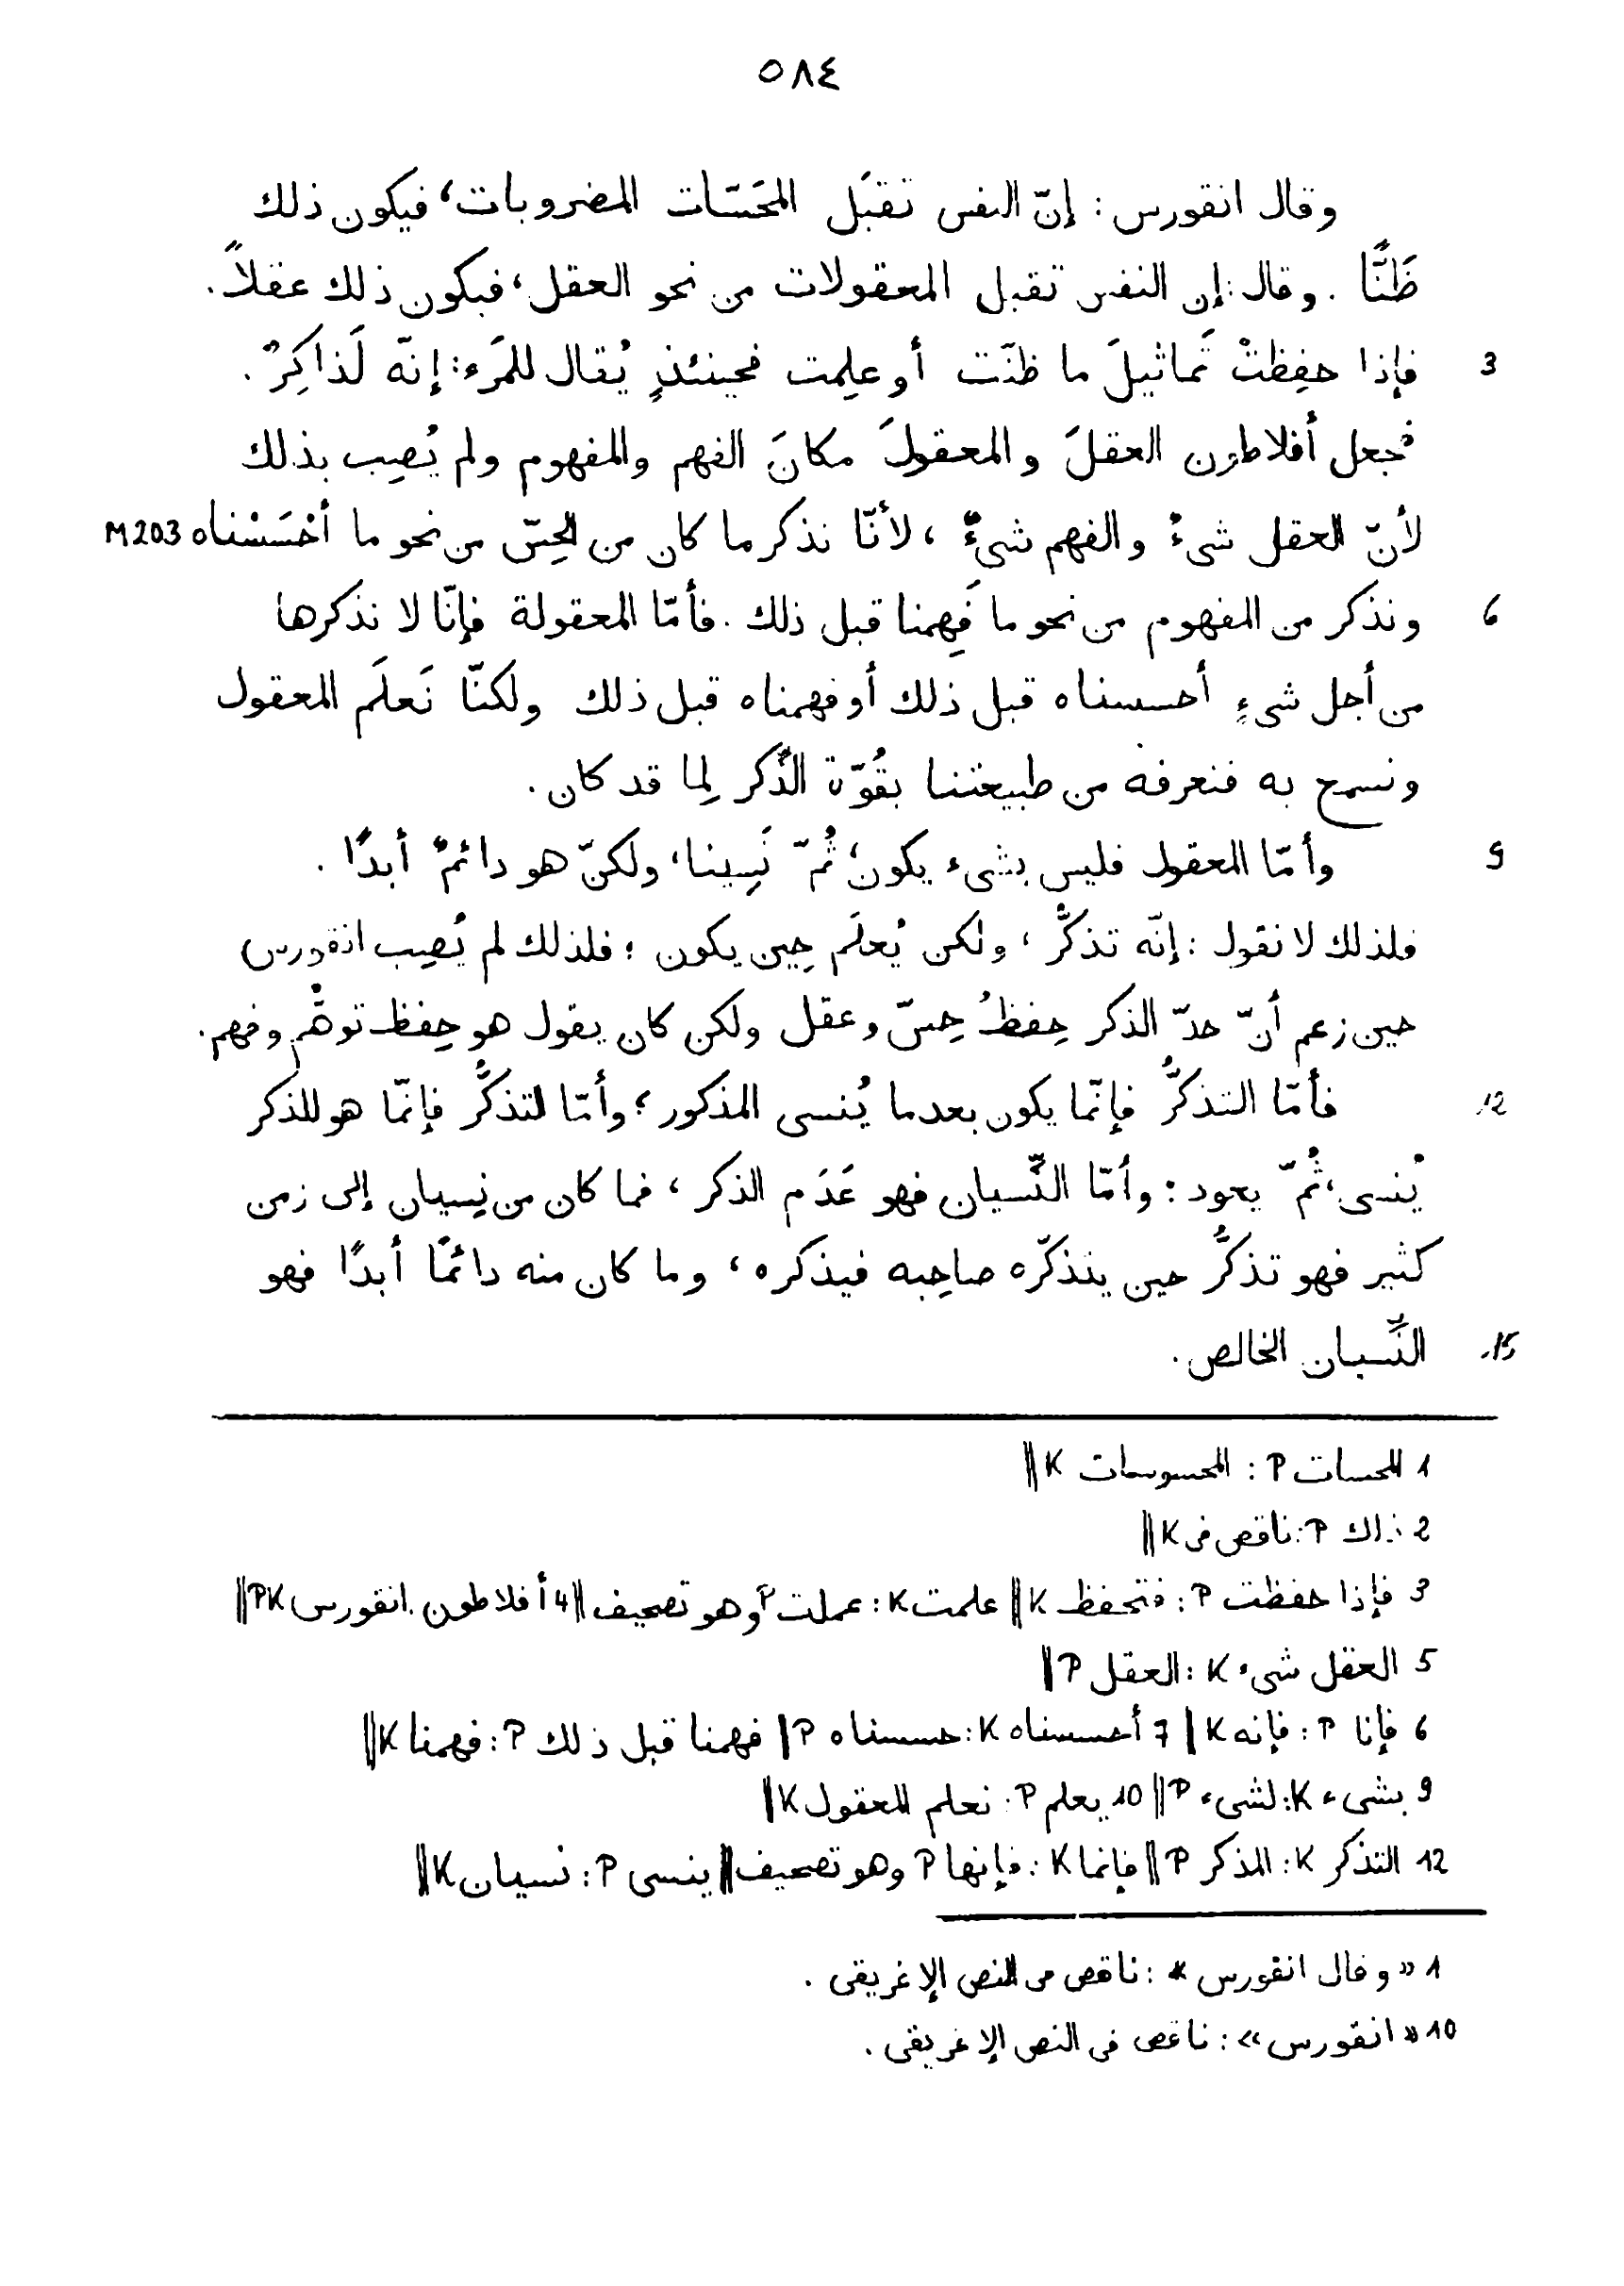 ٥٨٤
وقال انقورس : إنّ النفس تقبَل المحَسّات المضروبات، فيكون ذلك
ظَنًّا . وقال : إن النفس تقبل المعقولات من نحو العقل، فيكون ذلك عقلاً .
3 فإذا حفِظتْ تَماثيلَ ما ظنّت أو علِمت فحينئذٍ يُقال للمَرء : إنّه لَذاكِرٌ .
فجعل أفلاطون العقلَ والمعقولَ مكانَ الفهم والمفهوم ولم يُصِب بذلك
لأنّ العقل شىءٌ والفهم شىءٌ ، لأنّا نذكر ما كان من الحِسّ من نحو ما أحْسَسْناه M203
6 ونذكر من المفهوم من نحو ما فَهِمنا قبل ذلك . فأمّا المعقولة فإنّا لا نذكرها
من أجل شىءٍ أحسسناه قبل ذلك أو فهمناه قبل ذلك ولكنّا نَعلَم المعقول
ونسمح به فنعرفه من طبيعتنا بقُوّة الذِّكر لِما قد كان .
9 وأمّا المعقول فليس بشىء يكون، ثُمّ نَسِينا، ولكنّ هو دائمٌ أبدًا .
فلذلك لا نقول : إنّه تذكُّر ، ولكن يُعلَم حِين يكون ؛ فلذلك لم يُصِب انقورس
حين زعم أنّ حدّ الذكر حِفظُ حِسّ وعقل ولكن كان يقول هو حِفظ توهُّم وفهم .
12 فأمّا التذكُّر فإنّما يكون بعدما يُنسى المذكور ؛ وأمّا التذكُّر فإنّما هو للذكر
يُنسى، ثُمّ يعود : وأمّا النِّسيان فهو عَدَم الذكر ، فما كان من نِسيان إلى زمن
كثير فهو تذكُّر حين يتذكّره صاحِبه فيذكره ، وما كان منه دائمًا أبدًا فهو
15 النِّسيان الخالص .
1 المحسات P : المحسوسات K ||
2 ذلك P : ناقص فى K ||
3 فإذا حفظت P : فتحفظ K || علمت K : عملت P وهو تصحيف || 4 أفلاطون . انقورس PK ||
5 العقل شىء K : العقل P ||
6 فإنا P : فإنه K || 7 أحسسناه K : حسسناه P || فهمنا قبل ذلك P : فهمنا K ||
9 بشىء K : لشىء P || 10 يعلم P : نعلم المعقول K ||
12 التذكر K : المذكر P || فإنما K : فإنها P وهو تصحيف || ينسى P : نسيان K ||
1 « وقال انقورس » : ناقص فى النص الإغريقى .
10 « انقورس » : ناقص فى النص الإغريقى .